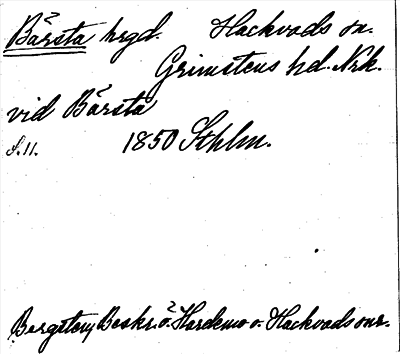 Bärsta hrgd. Hackvads sn.
Grimstens hd. Nrk.
vid Bärsta
S. 11. 1850 Sthlm.
Bergsten, Beskr. ö. Hardemo o. Hackvads snr.